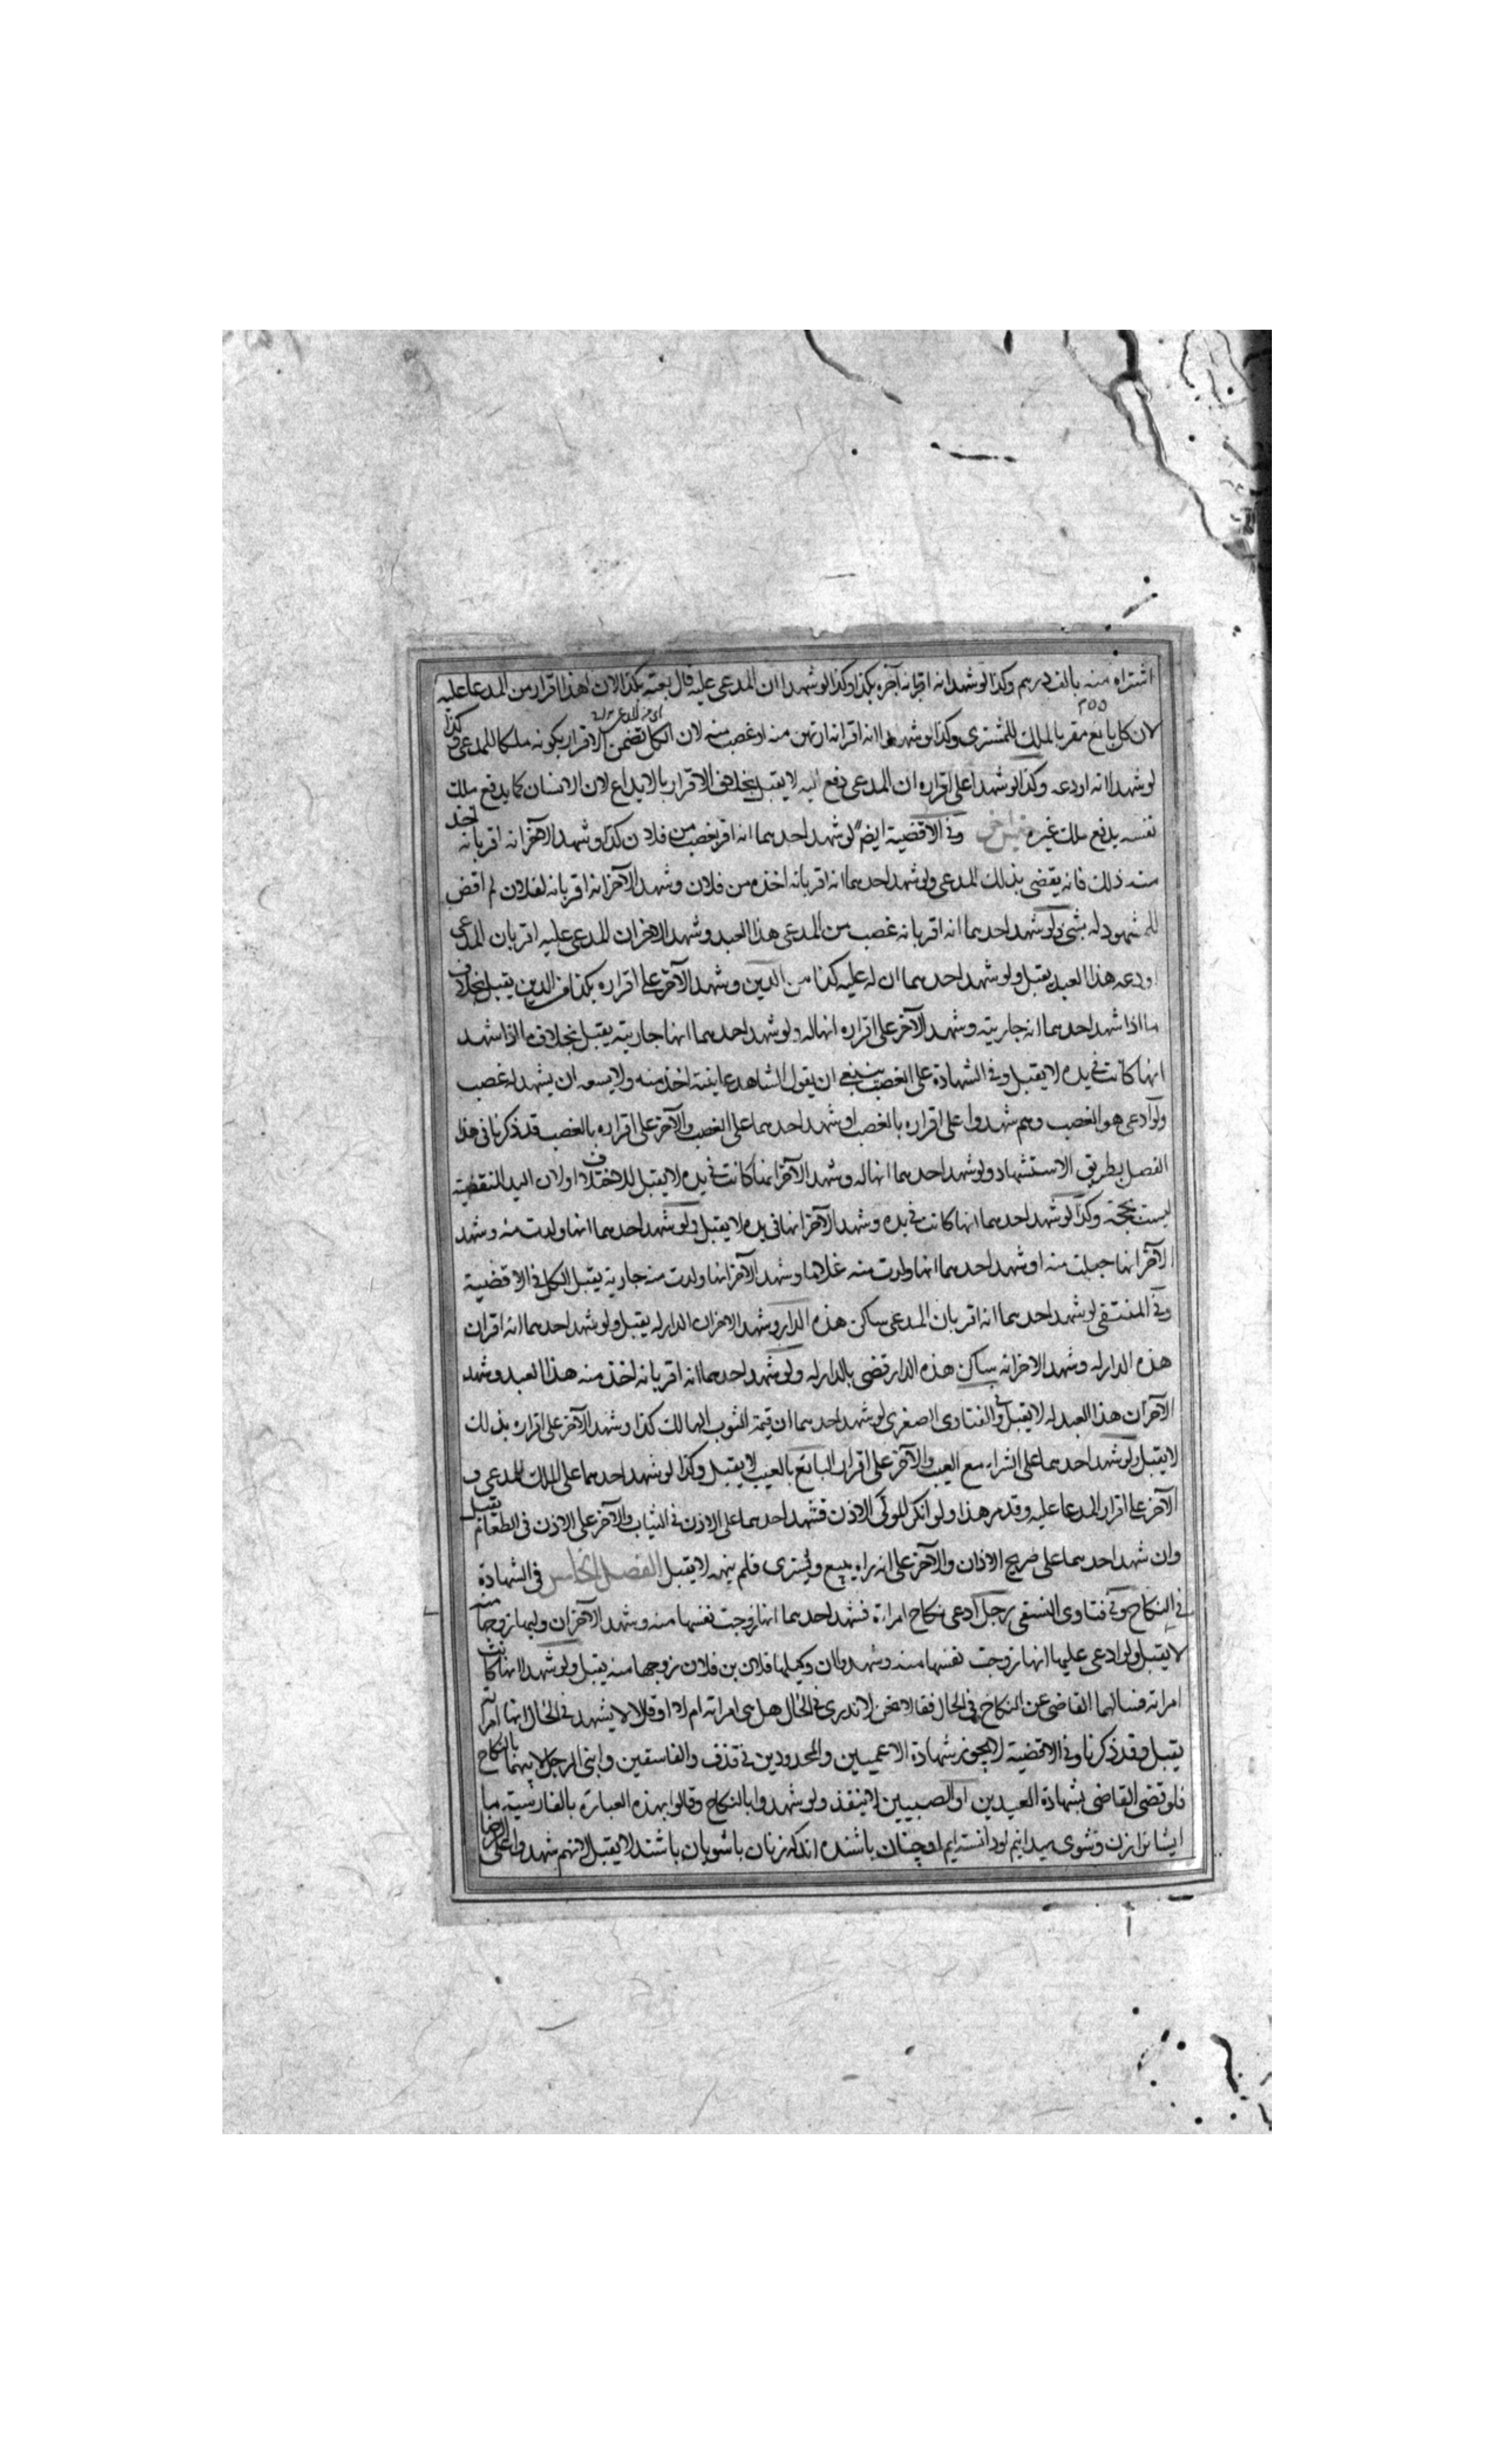 اشتراه منه بالف درهم وكذا لو شهدا انه اقر انه آجره بكذا وكذا لو شهدا ان المدعى عليه قال بعته بكذا لان هذا اقرار من المدعا عليه
لان كل بايع مقر بالملك للمشترى وكذا لو شهدوا انه اقر انه ارتهن منه او غصب منه لان الكل تضمن الاقرار بكونه ملكا للمدعى وكذا
لو شهدا انه اودعه وكذا لو شهدا على اقراره ان المدعى دفع اليه لا يقبل بخلاف الاقرار بالايداع لان الانسان كما يدفع ملك
نفسه يدفع ملك غيره وفى الاقضية ايضا لو شهد احدهما انه اقر بغصب من فلان كذا وشهد الآخر انه اقر بانه اخذ
منه ذلك فانه يقضى بذلك للمدعى ولو شهد احدهما انه اقر بانه اخذه من فلان وشهد الآخر انه اقر بانه لفلان لم اقض
للمشهود له بشئ ولو شهد احدهما انه اقر بانه غصب من المدعى هذا العبد وشهد الاخر ان المدعى عليه اقر بان المدعى
اودعه هذا العبد يقبل ولو شهد احدهما ان له عليه كذا من الدين وشهد الآخر على اقراره بكذا من الدين يقبل بخلاف
ما اذا شهد احدهما انه جاريته وشهد الآخر على اقراره انها له ولو شهد احدهما انها جاريته يقبل بخلاف ما اذا شهد
انها كانت فى يده لا يقبل وفى الشهادة على الغصب ينبغى ان يقول الشاهد عاينته اخذ منه ولا يسعه ان يشهد له غصب
ولو ادعى هو الغصب وهم شهدوا على اقراره بالغصب او شهد احدهما على الغصب والآخر على اقراره بالغصب قد ذكرنا فى هذا
الفصل بطريق الاستشهاد ولو شهد احدهما انها له وشهد الآخر انها كانت فى يده لا يقبل للاختلاف او لان اليد المنقضية
ليست بحجة وكذا لو شهد احدهما انها كانت فى يده وشهد الآخر انها فى يده لا يقبل ولو شهد احدهما انها ولدت منه وشهد
الآخر انها حبلت منه او شهد احدهما انها ولدت منه غلاما وشهد الآخر انها ولدت منه جارية يقبل الكل فى الاقضية
وفى المنتقى لو شهد احدهما انه اقر بان المدعى ساكن هذه الدار وشهد الاخر ان الدار له يقبل ولو شهد احدهما انه اقر ان
هذه الدار له وشهد الاخر انه ساكن هذه الدار قضى بالدار له ولو شهد احدهما انه اقر بانه اخذ منه هذا العبد وشهد
الآخر ان هذا العبد له لا يقبل وفى الفتاوى الصغرى لو شهد احدهما ان قيمة الثوب الهالك كذا وشهد الآخر على اقراره بذلك
لا يقبل ولو شهد احدهما على الشراء مع العيب والآخر على اقرار البائع بالعيب لا يقبل وكذا لو شهد احدهما على الملك للمدعى و
الآخر على اقرار المدعا عليه وقد مر هذا ولو انكر المولى الاذن فشهد احدهما على الاذن فى الثياب والآخر على الاذن فى الطعام يقبل
وان شهد احدهما على صريح الاذن والآخر على انه راه يبيع ويشترى فلم ينهه لا يقبل الفصل الخامس فى الشهادة
فى النكاح وفى فتاوى النسفى رجل ادعى نكاح امراة فشهد احدهما انها زوجت نفسها منه وشهد الآخر ان وليها زوجها منه
لا يقبل ولو ادعى عليها انها تزوجت نفسها منه وشهدوا ان وكيلها فلان بن فلان زوجها منه يقبل ولو شهدا انها كانت
امراته فسالهما القاضى عن النكاح فى الحال فقالا نحن لا ندرى فى الحال هل هى امراته ام لا او قالا لا يشهد فى الحال انها امراته
يقبل وقد ذكرنا وفى الاقضية لا يجوز شهادة الاعميين والمحدودين فى قذف والفاسقين وابنى الرجل لابيهما بالنكاح
فلو قضى القاضى بشهادة العبدين او الصبيين لا ينفذ ولو شهدوا بالنكاح وقالوا بهذه العبارة بالفارسية ما
ايشانرا زن وشوى ميدانيم لا يقبل لانهم شهدوا على